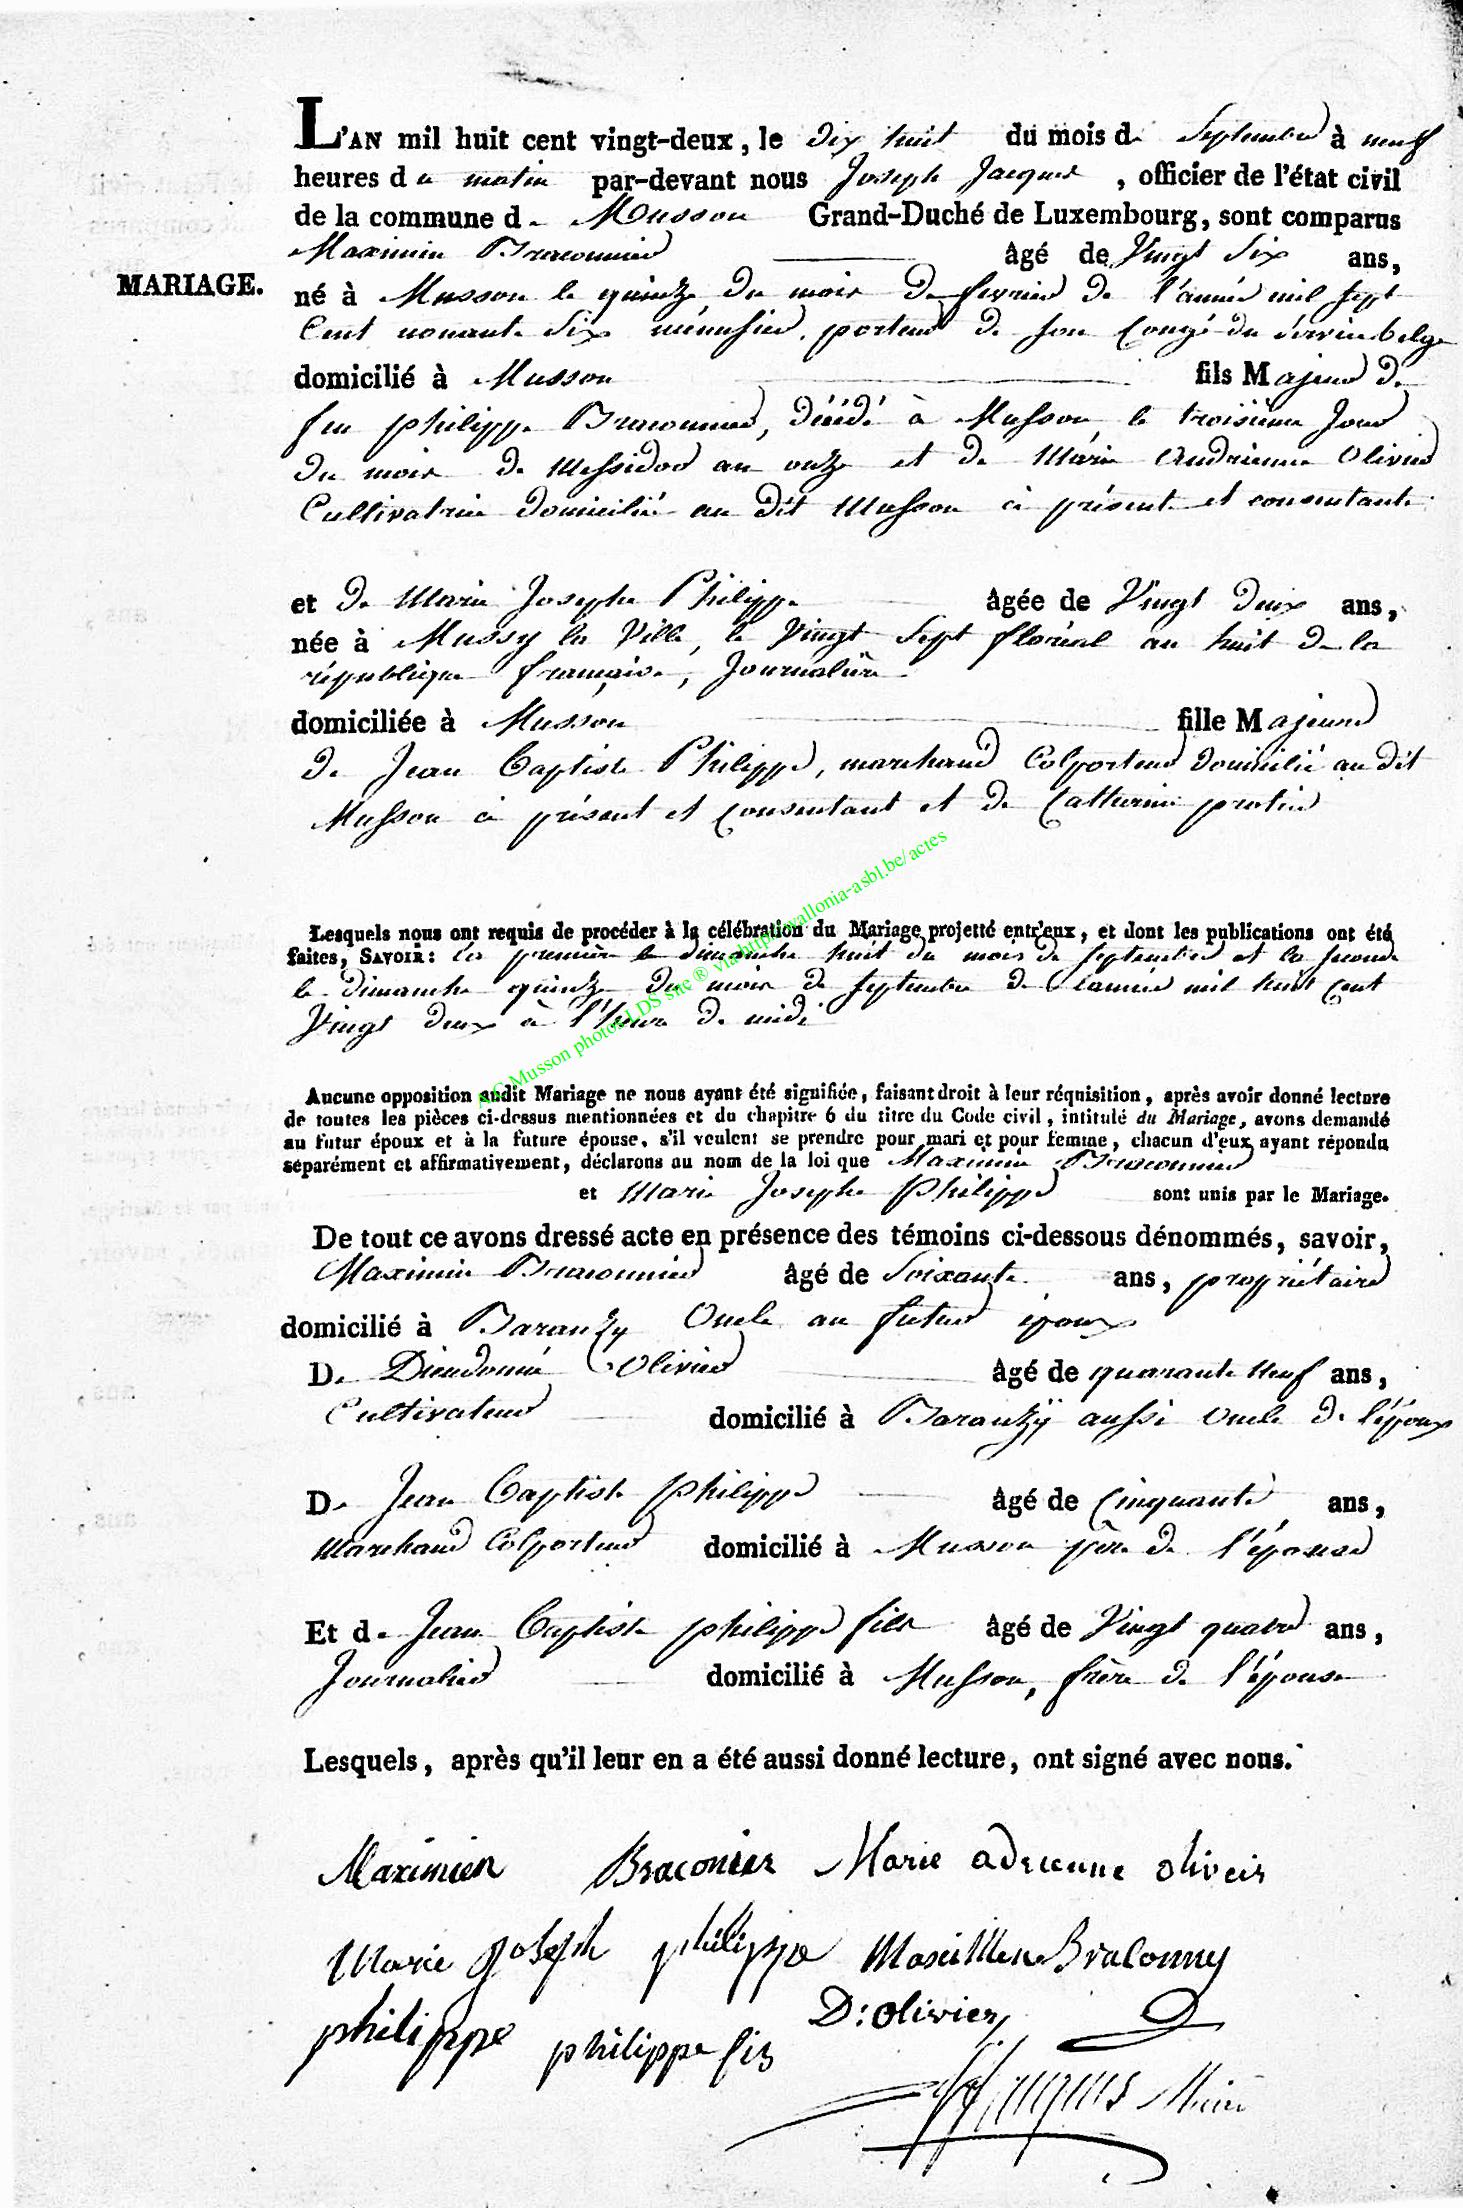 L'AN mil huit cent vingt-deux, le dix huit du mois de Septembre à neuf
heures du matin par-devant nous Joseph Jacques, officier de l'état civil
de la commune de Musson Grand-Duché de Luxembourg, sont comparus
Maximin Braconnier âgé de Vingt Six ans,
MARIAGE.
né à Musson le quinze du mois de fevrier de l'année mil sept
Cent nonante Six ménusier, porteur de son Congé du service belge
domicilié à Musson fils Majeur de
feu philippe Braconnier, décédé à Musson, le troisième Jour
du mois de Messidor an onze et de Marie Andrienne Olivier
Cultivatrice domicilié au dit Musson ci présente et consentante
et de Marie Josephe Philippe âgée de Vingt deux ans,
née à Mussy la Ville, le Vingt Sept floréal an huit de la
république française, Journalière
domiciliée à Musson fille Majeure
de Jean Baptiste Philippe, marchand Colporteur domicilié au dit
Musson ci présent et Consentant et de Catherine protin
Lesquels nous ont requis de procéder à la célébration du Mariage projetté entr'eux, et dont les publications ont été
faites, SAVOIR: la première le dimanche huit du mois de Septembre et la seconde
le dimanche quinze du mois de Septembre de l'année mil huit Cent
Vingt deux à l'heure de midi
Aucune opposition audit Mariage ne nous ayant été signifiée, faisant droit à leur réquisition, après avoir donné lecture
de toutes les pièces ci-dessus mentionnées et du chapitre 6 du titre du Code civil, intitulé du Mariage, avons demandé
au futur époux et à la future épouse, s'il veulent se prendre pour mari et pour femme, chacun d'eux ayant répondu
séparément et affirmativement, déclarons au nom de la loi que Maximin Braconnier
et Marie Josephe Philippe sont unis par le Mariage.
De tout ce avons dressé acte en présence des témoins ci-dessous dénommés, savoir,
Maximin Braconnier âgé de Soixante ans, propriétaire
domicilié à Baranzy Oncle au futur époux
De Dieudonné Olivier âgé de quarante Neuf ans,
Cultivateur domicilié à Baranzÿ aussi Oncle de l'époux
De Jean Baptiste philippe âgé de Cinquante ans,
Marchand Colporteur domicilié à Musson père de l'épouse
Et de Jean Baptiste philippe fils âgé de Vingt quatre ans,
Journalier domicilié à Musson, frère de l'épouse
Lesquels, après qu'il leur en a été aussi donné lecture, ont signé avec nous.
Maximien Braconier Marie adrienne oliveir
Marie Joseph philippe Maximilien Braconny
philippe philippe fis D: olivier
Jacques Maire
AC Musson photos LDS site ® via http://wallonia-asbl.be/actes